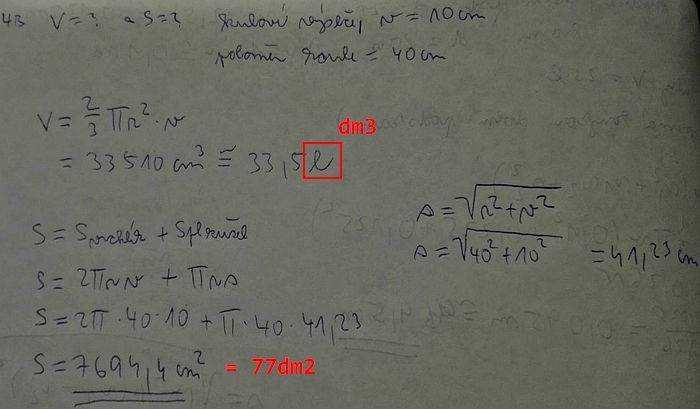 43 V=? a S=? kulová výseč, v = 10cm
poloměr koule = 40cm
V = 2/3 πr² · v
= 33510 cm³ ≅ 33,5 l
dm3
s = √r²+v²
s = √40²+10² = 41,23 cm
S = Svrchlík + Splkužel
S = 2πrv + πrs
S = 2π · 40 · 10 + π · 40 · 41,23
S = 7694,4 cm² = 77dm2